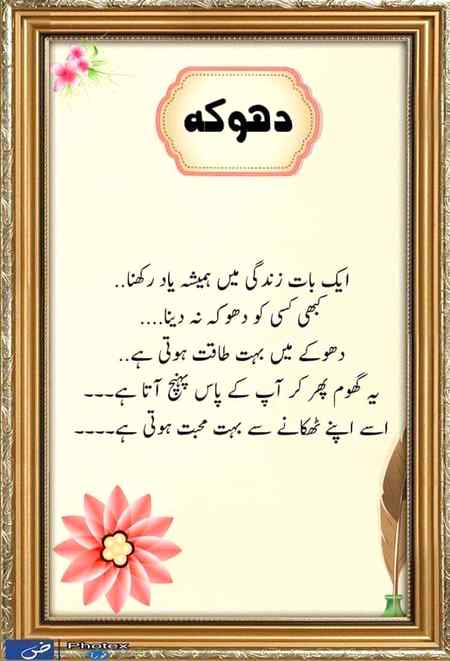 دھوکہ
ایک بات زندگی میں ہمیشہ یاد رکھنا..
کبھی کسی کو دھوکہ نہ دینا....
دھوکے میں بہت طاقت ہوتی ہے..
یہ گھوم پھر کر آپ کے پاس پہنچ آتا ہے---
اسے اپنے ٹھکانے سے بہت محبت ہوتی ہے----
Photex